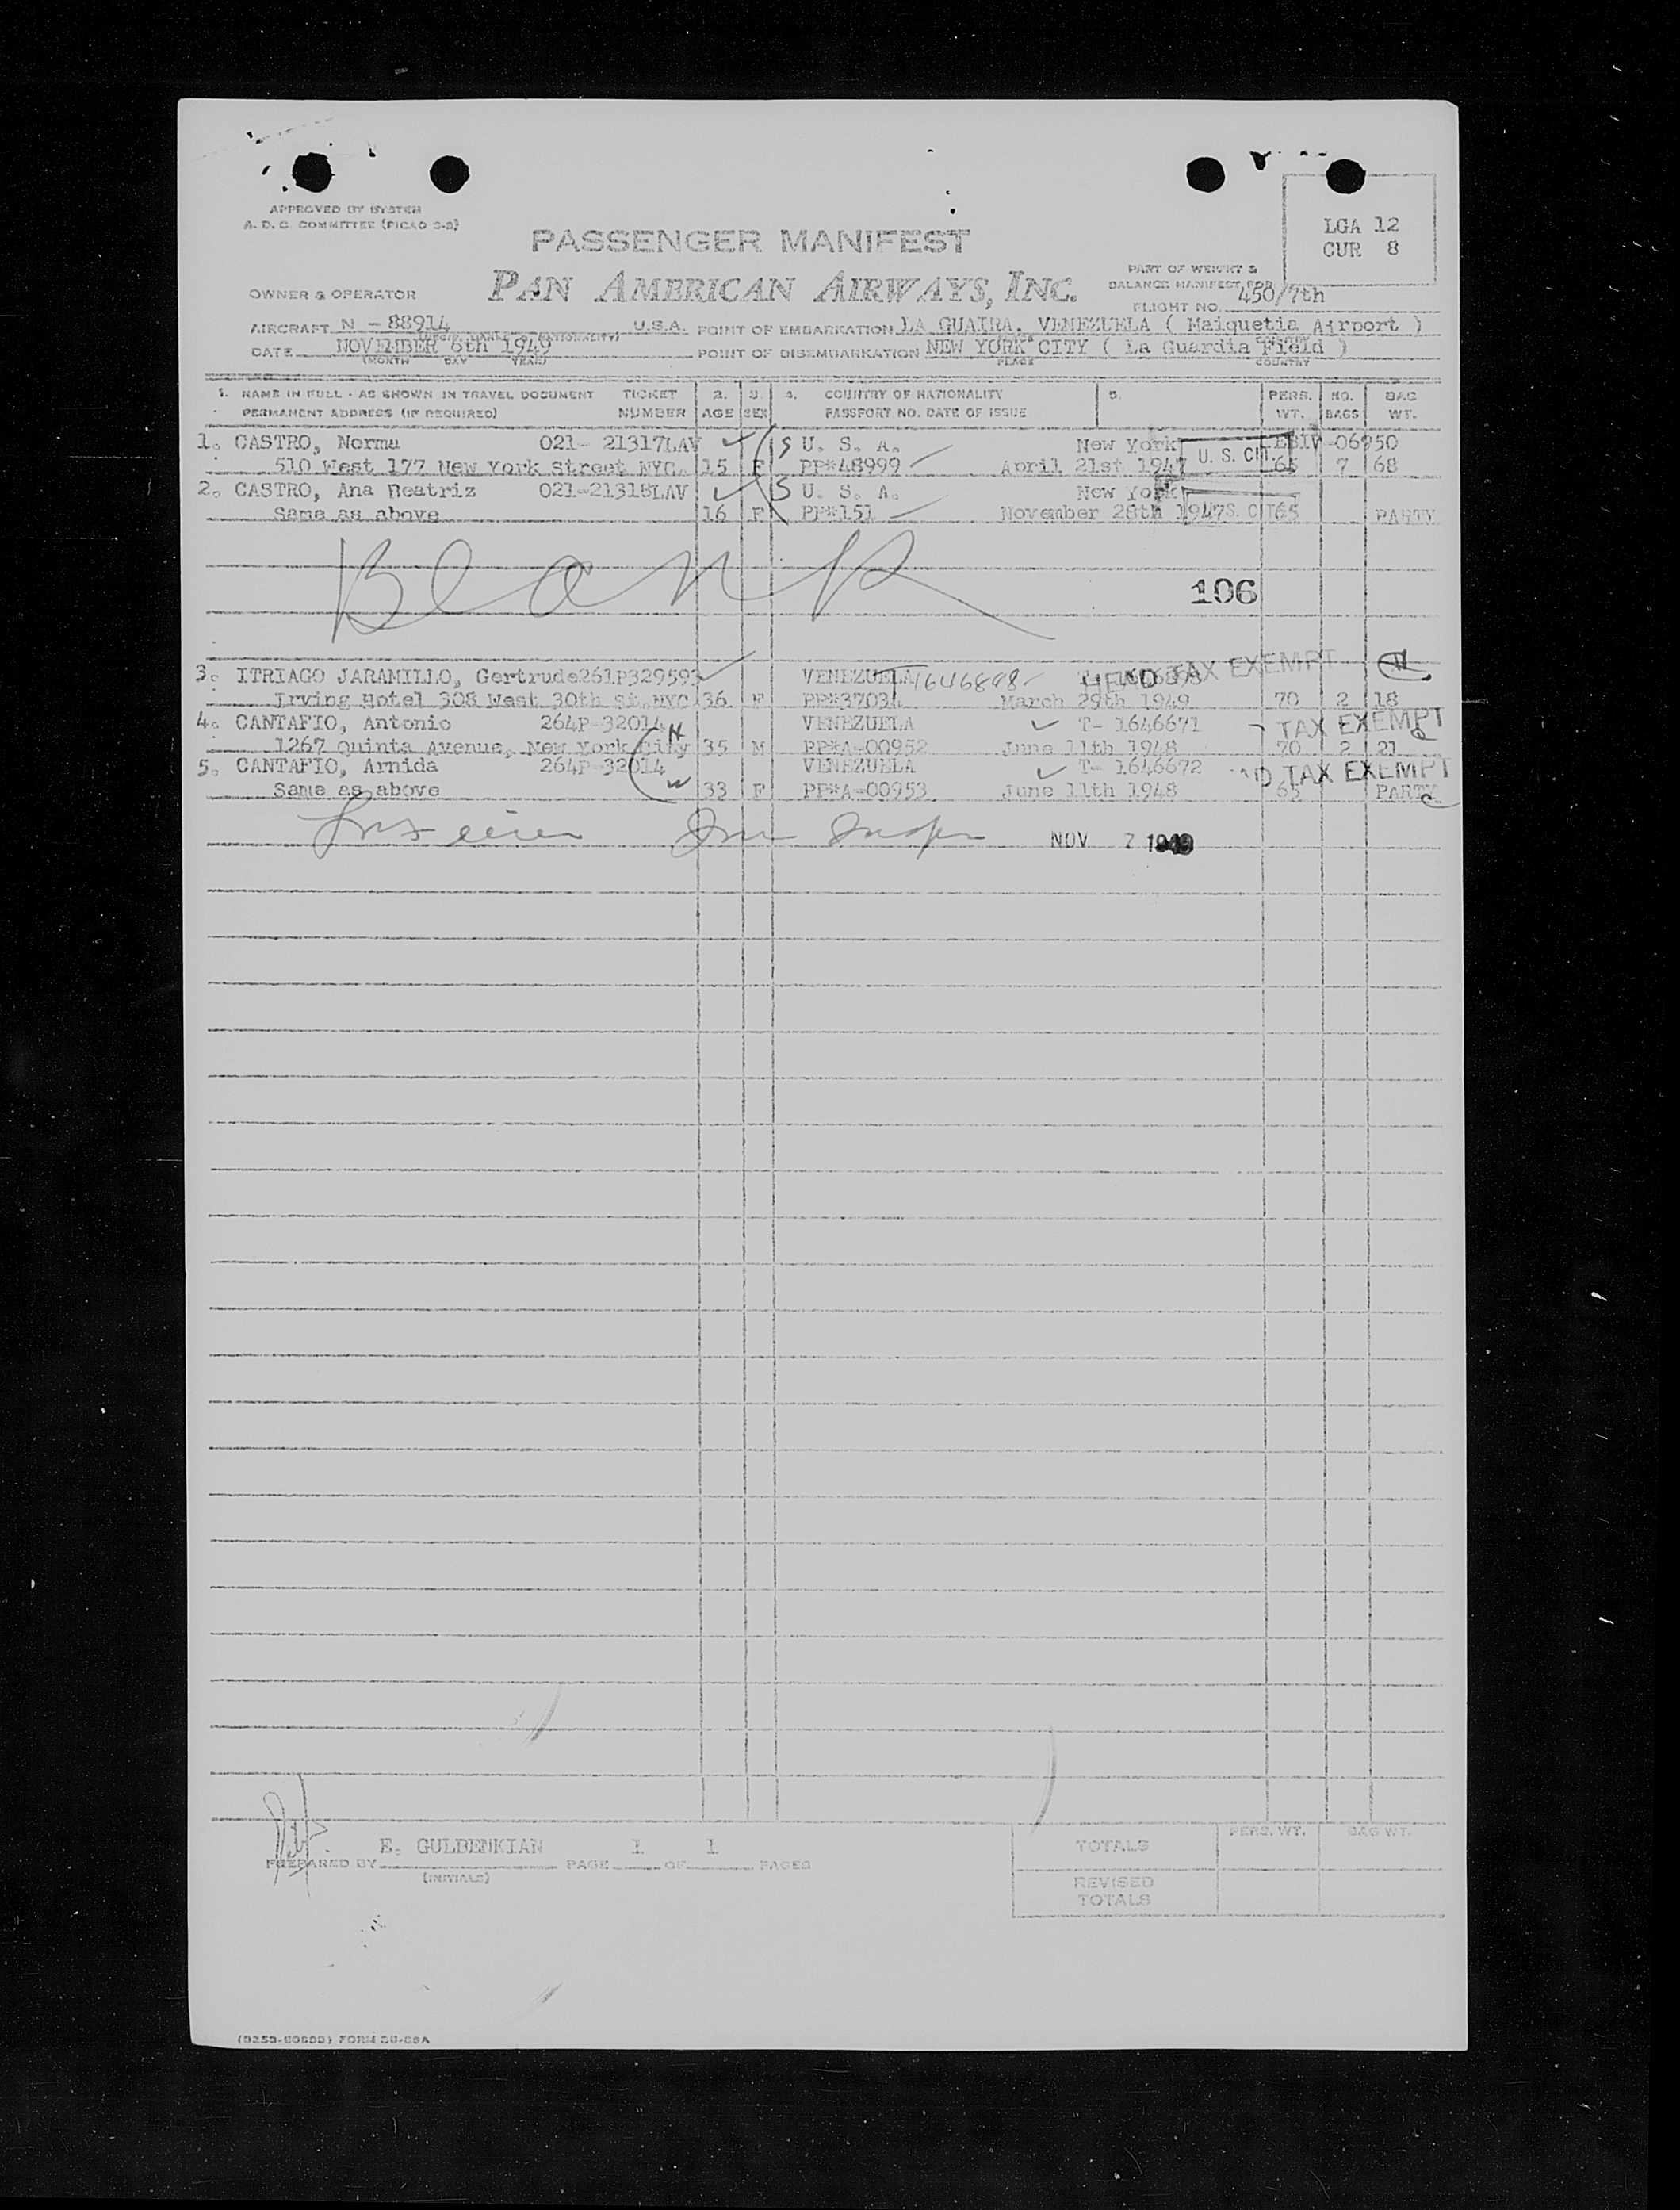 APPROVED BY SYSTEM
A. D. C. COMMITTEE (PICAO 2-3)
LGA 12
CUR 8
PASSENGER MANIFEST
PAN AMERICAN AIRWAYS, INC.
PART OF WEIGHT &
BALANCE MANIFEST FOR
OWNER & OPERATOR
FLIGHT NO. 450/7th
AIRCRAFT N - 88914 U.S.A. POINT OF EMBARKATION LA GUAIRA, VENEZUELA ( Maiquetia Airport )
DATE NOVEMBER 6th 1949 POINT OF DISEMBARKATION NEW YORK CITY ( La Guardia Field )
(MONTH DAY YEAR) PLACE COUNTRY
1. NAME IN FULL - AS SHOWN IN TRAVEL DOCUMENT TICKET 2. 3. 4. COUNTRY OF NATIONALITY 5. PERS. NO. BAG
PERMANENT ADDRESS (IF REQUIRED) NUMBER AGE SEX PASSPORT NO. DATE OF ISSUE WT. BAGS WT.
1. CASTRO, Norma 021- 21317LAV U. S. A. New York -06950
510 West 177 New York Street NYC. 15 F PP#48999 April 21st 1947 U. S. CIT. 65 7 68
2. CASTRO, Ana Beatriz 021-21318LAV U. S. A. New York
Same as above 16 F PP#151 November 28th 1947 S. CIT 65 PARTY
Blank
106
3. ITRIAGO JARAMILLO, Gertrude 261P329593 VENEZUELA HEAD TAX EXEMPT
Irving Hotel 308 West 30th St. NYC 36 F PP#37034 March 29th 1949 70 2 18
4. CANTAFIO, Antonio 264P-32014 H VENEZUELA T- 1646671 TAX EXEMPT
1267 Quinta Avenue, New York City 35 M PP#A-00952 June 11th 1948 70 2 21
5. CANTAFIO, Arnida 264P-32014 W VENEZUELA T- 1646672 D TAX EXEMPT
Same as above 33 F PP#A-00953 June 11th 1948 65 PARTY
NOV 7 1949
E. GULBENKIAN 1 1
PREPARED BY PAGE OF PAGES
(INITIALS)
PERS. WT. BAG WT.
TOTALS
REVISED
TOTALS